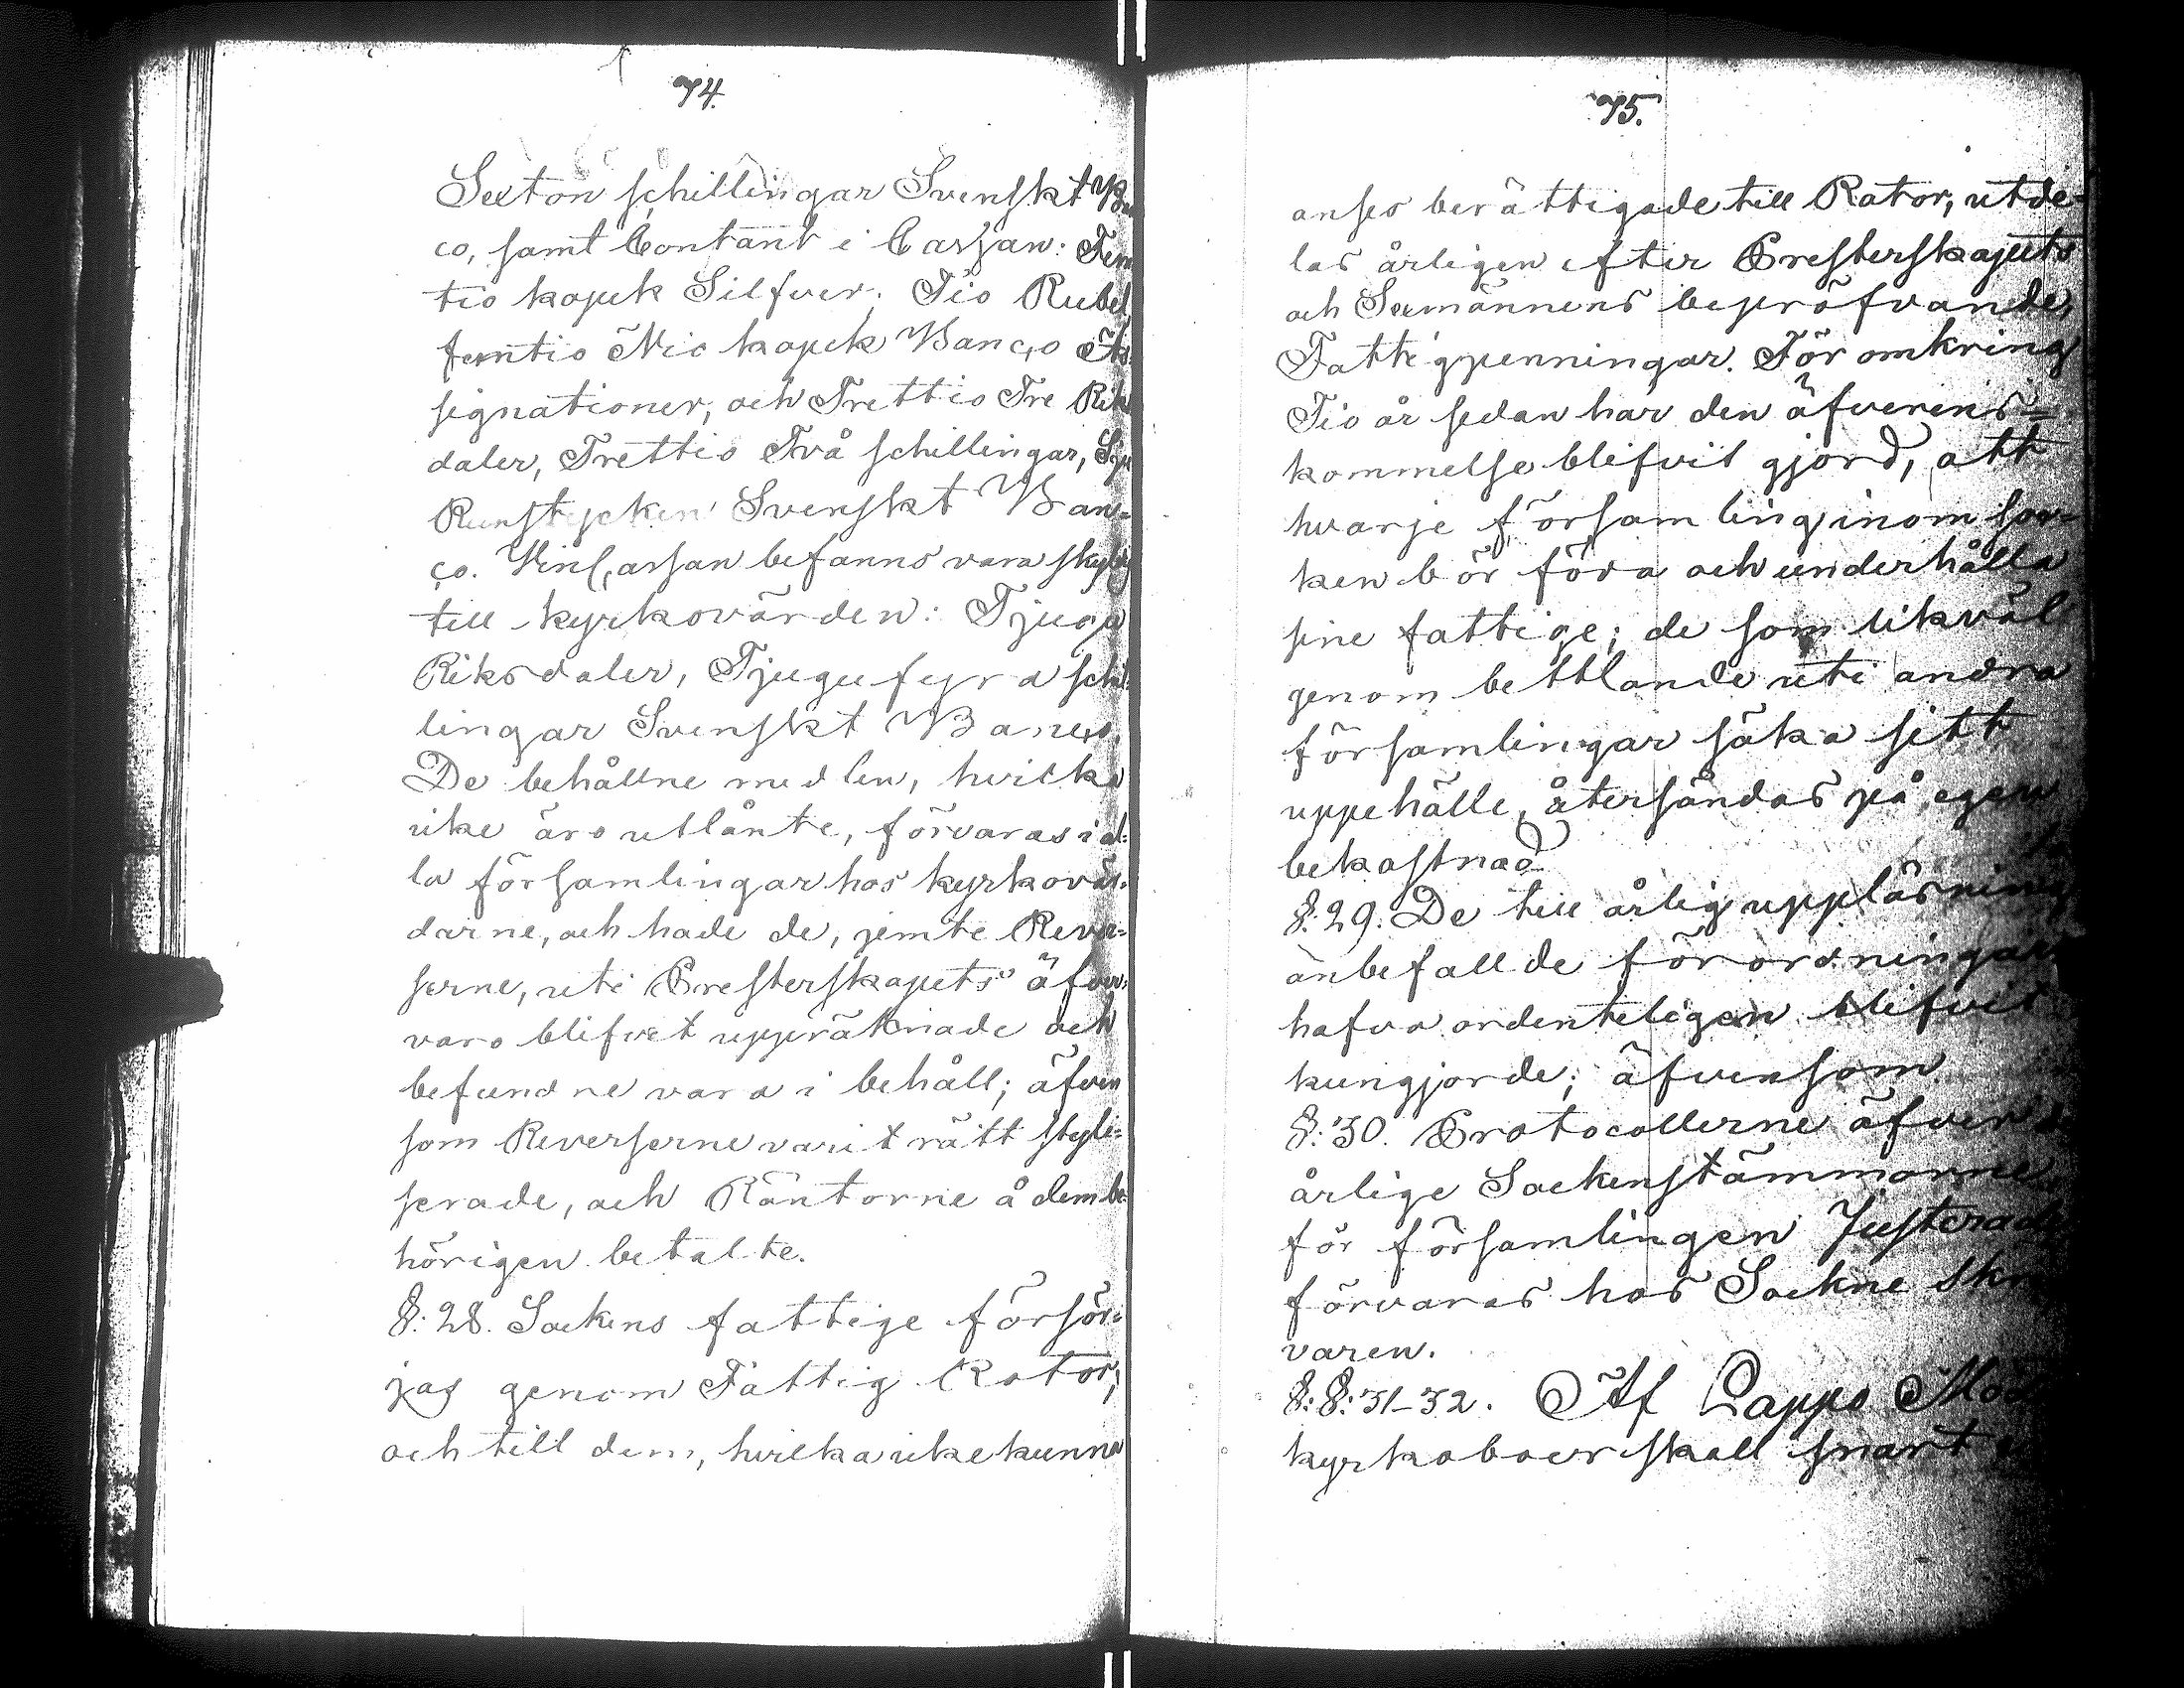 74.
Sexton schillingar Svenskt Ban
co, samt Contant i Cassan: Fem
tio kopek Silfver; Tio Rubel
femtio Nio kopek Banco As
signationer, och Trettio Tre Rik
daler, Trettio Två schillingar,
Runstycken Svenskt Ban=
co. Vin Cassan befanns vara skyldig
till kyrkovärden: Tjugu
Riksdaler, Tjugufyra schil
lingar Svenskt Banco.
De behållne medlen, hvilka
icke äro utlånte, förvaras i al=
la församlingar hos kyrkovär=
darne, och hade de, jemte Rever=
serne, uti Presterskapets öfver=
varo blifvit uppräknade och
befundne vara i behåll; äfven
som Reverserne varit rätt styli=
serade, och Räntorne å dem be=
hörigen betalte.
§: 28. Sockens fattige försör=
jas genom Fattig Rotor;
och till dem, hvilka icke kunna
75.
anses berättigade till Rotor, utde=
las årligen efter Presterskapets
och Sexmännens bepröfvande,
Fattigpenningar. För omkring
Tio år sedan har den öfverens=
kommelse blifvit gjord, att
hvarje församling inom soc=
ken bör föda och underhålla
sine fattige; de som likväl
genom bettlande uti andra
församlingar söka sitt
uppehälle, återsändas på egen
bekostnad.
§: 29. De till årlig uppläsning
anbefallde förordningar
hafva ordenteligen blifvit
kungjorde; äfvensom
§: 30. Protocollerne öfver
årlige Sockenstämmorne
för församlingen Justerade
förvaras hos Sockne Skri
varen.
§: §: 31-32. Af Lappo Mod
kyrkoboer skall snart